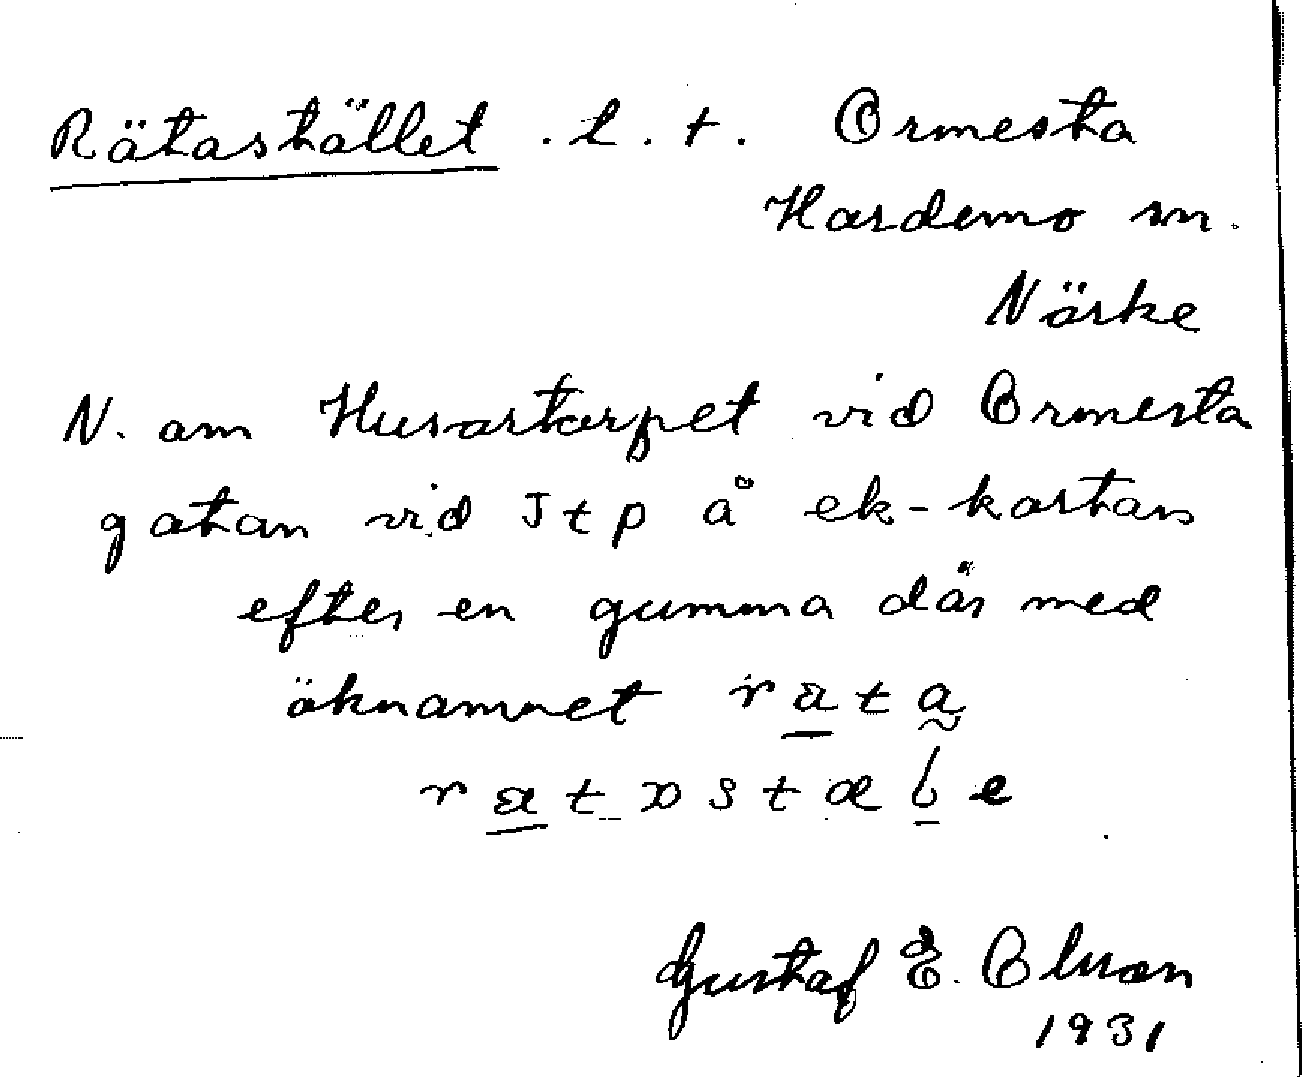 Rätastället . l. t. Ormesta
Hardemo sn.
Närke
N. om Husartorpet vid Ormesta
gatan vid Jtp å ek-kartan
efter en gumma där med
öknamnet rata
Gustaf E. Olsson
1931